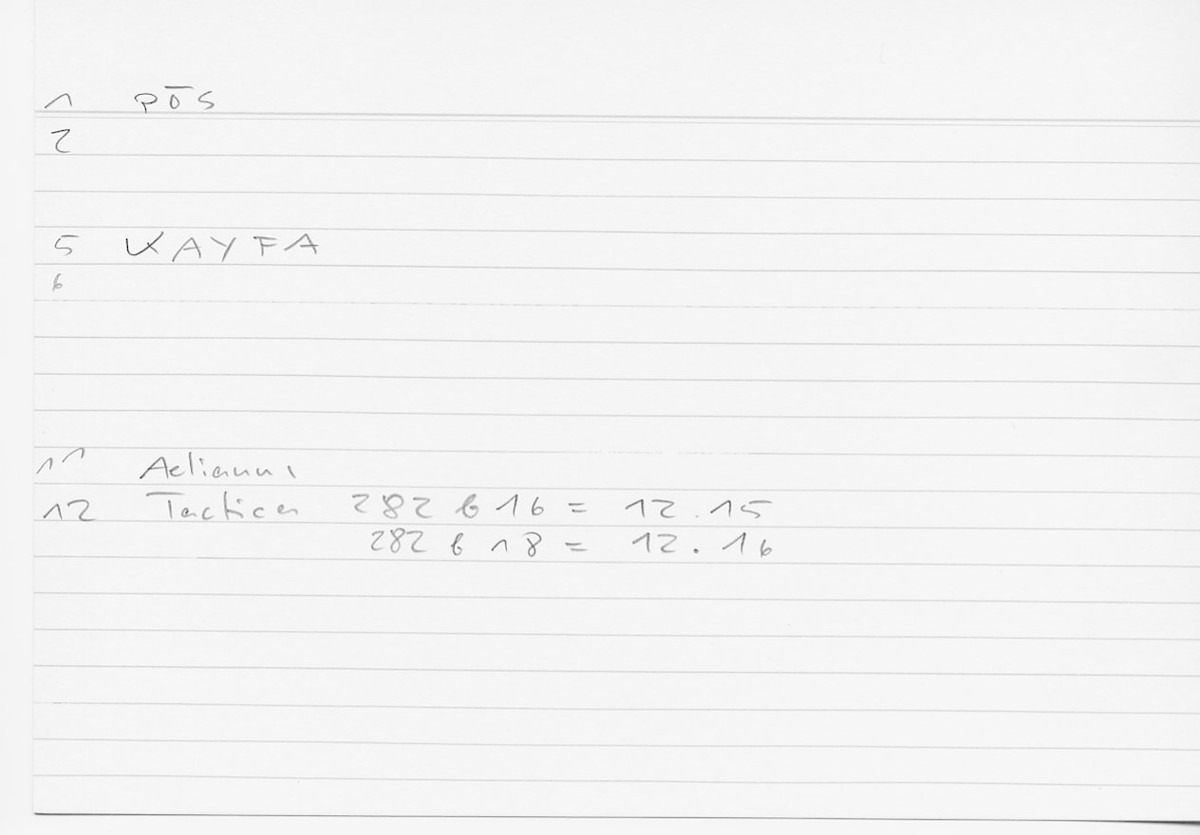 1 pōs
2
5 KAYFA
6
11 Aelianus
12 Tactica 282 b 16 = 12.15
282 b 18 = 12.16